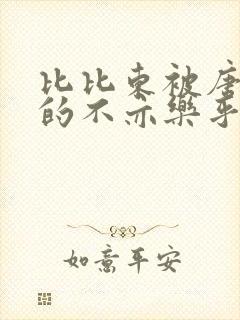 比比东被唐
的不亦乐乎
如意平安